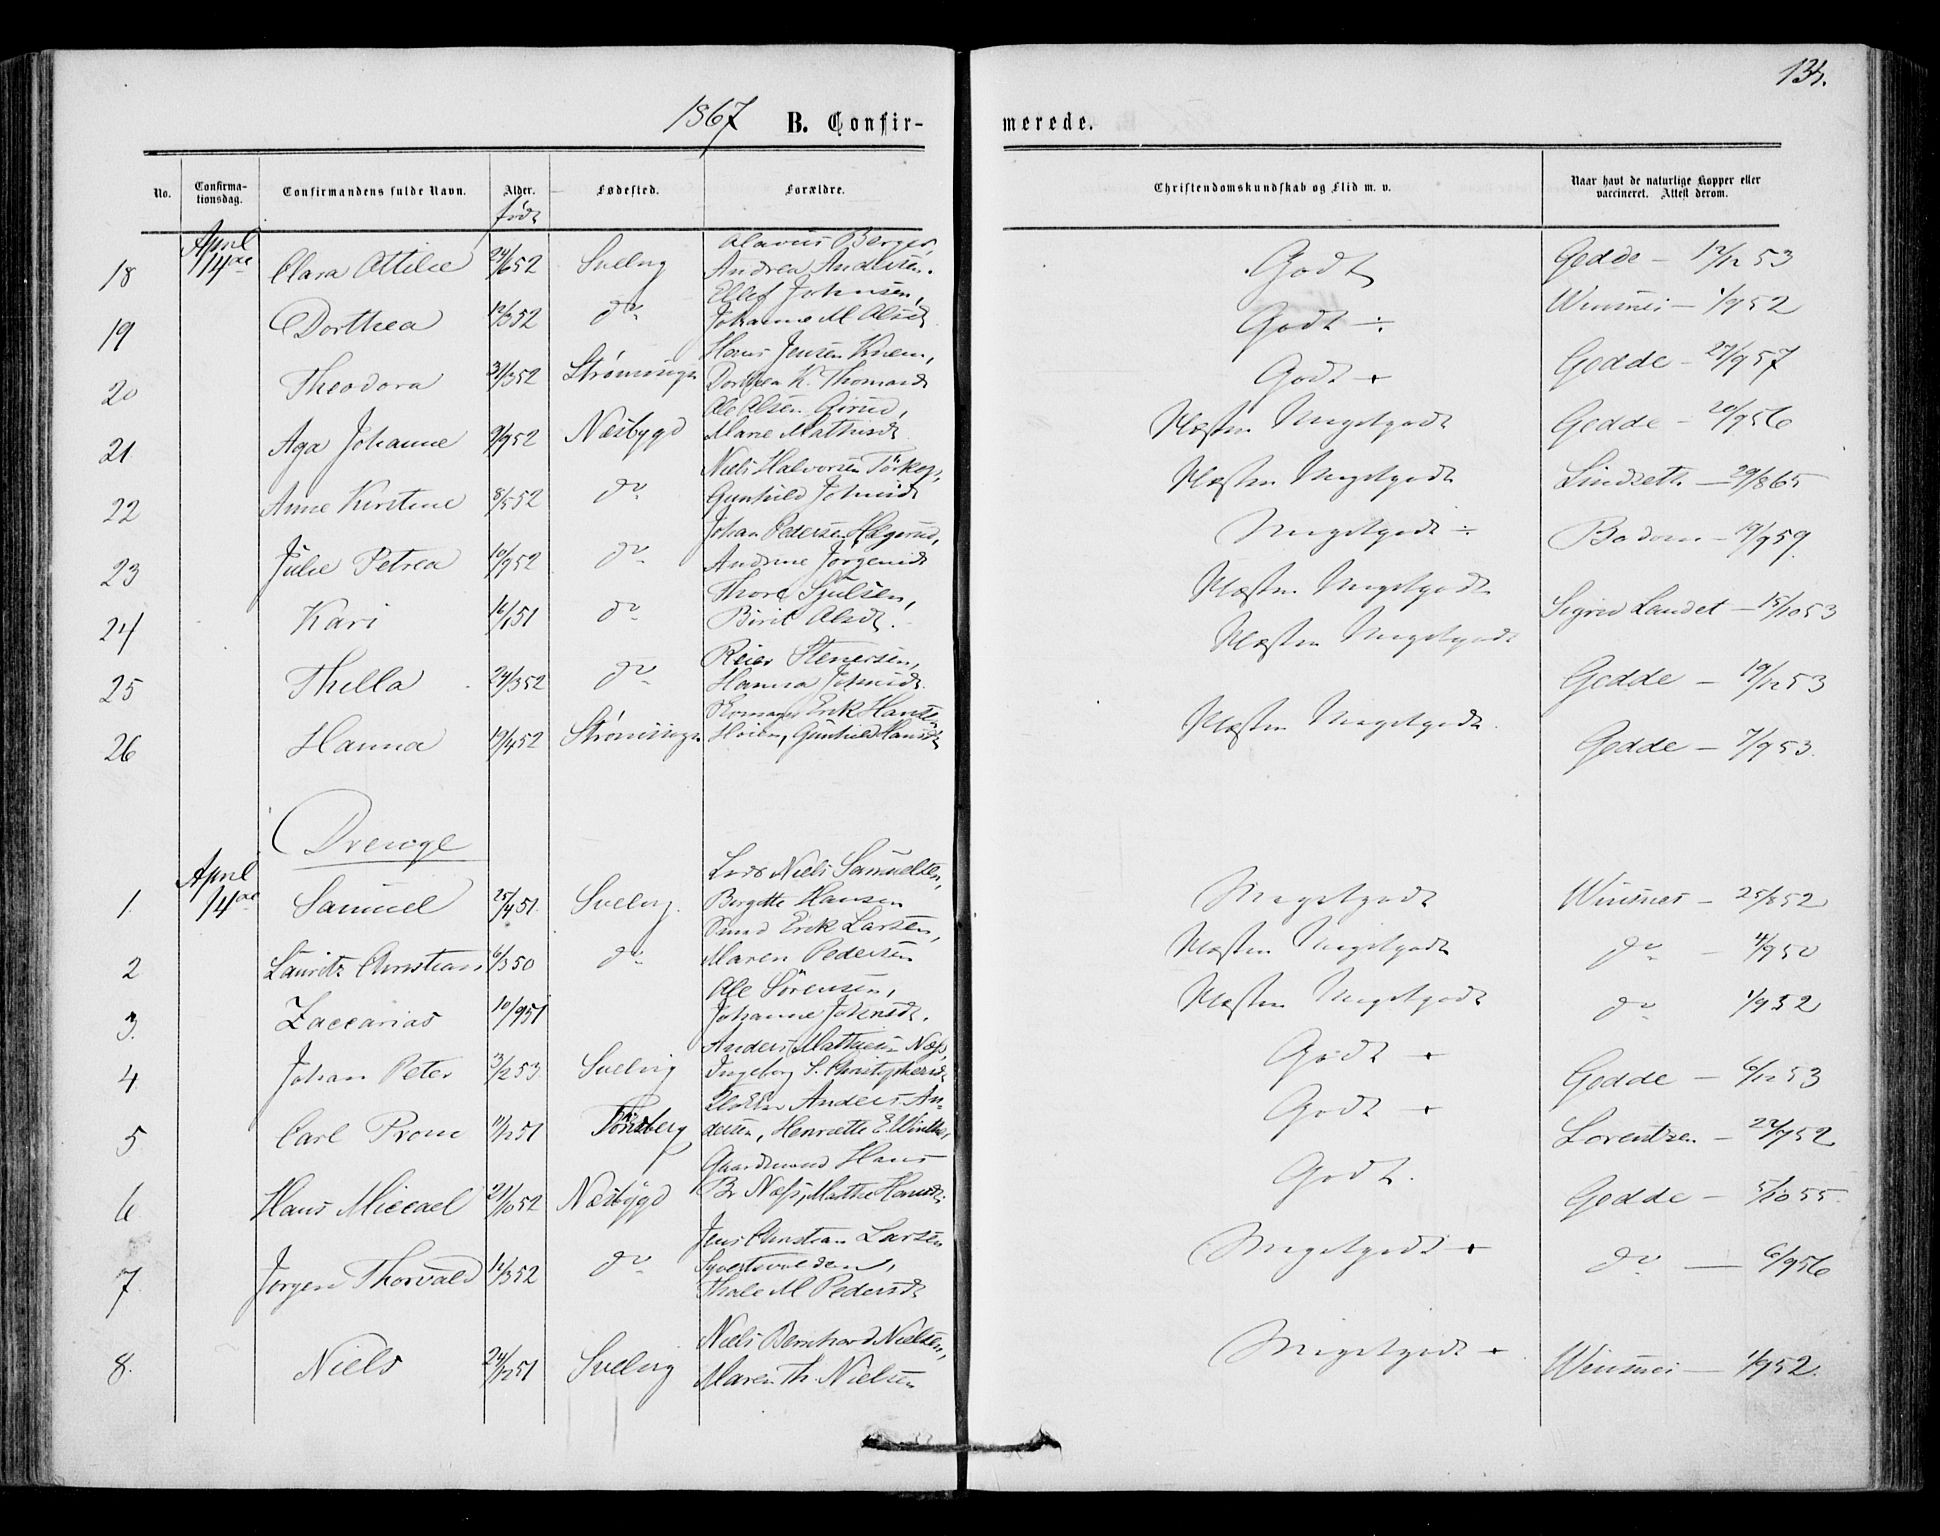 135.
1867 B. Confir- merede.
No. Confirma-tionsdag. Confirmandens fulde Navn. Alder. født Fødested. Forældre. Christendomskundskab og Flid m. v. Naar havt de naturlige Kopper eller vaccineret. Attest derom.
18 April 14de Clara Ottilie 24/6 52 Svelvig Olavus Berger, Andrea Andersen. Godt Gedde — 12/12 53
19 Dorthea 12/3 52 do Ellef Johnsen, Johanne M Olsd. Godt ÷ Winsnes — 1/9 52
20 Theodora 31/3 52 Strømssogn Hans Jensen Knem, Dorthea K. Thomasd. Godt + Gedde — 27/9 57
21 Aga Johanne 9/9 52 Nesbygd Ole Olsen Grrud, Marie Mathisd. Næsten Megetgodt Gedde — 20/9 56
22 Anne Kirstine 8/5 52 do Niels Halvorsen Törkop, Gunhild Johnsd. Næsten Megetgodt Lindseth — 29/8 65
23 Julie Petrea 10/9 52 do Johan Pedersen Hægsrud, Andrine Jørgensd. Megetgodt ÷ Bodom — 19/9 59.
24 Kari 16/1 51 do Thore Sjulsen, Birit Olsd. Næsten Megetgodt Sigrid Landet — 15/10 53
25 Thella 24/3 52 do Reier Stenersen, Hanna Johnsd. Næsten Megetgodt Gedde — 19/12 53
26 Hanna 19/4 52 Strømssogn Erik Hansen Hoien, Gunhild Hansd. Næsten Megetgodt. Gedde — 7/9 53.
Drenge
1. April 14de Samuel 25/4 51. Svelvig. Niels Samuelsen, Bergitte Hansen Megetgodt Winsnes — 25/8 52
2 Lauritz Christian 6/3 50 do Smed Erik Larsen, Maren Pedersen Næsten Megetgodt do — 4/9 50
3. Zaccarias 10/9 51 Ole Sörensen, Johanne Johnsd. Næsten Megetgodt do 1/9 52
4. Johan Peter 3/2 53. Svelvig Anders Mathisen Næss, Ingeborg S. Christophersd. Godt + Gedde — 6/12 53
5. Carl Prom 11/12 51 Tönsberg Anders Andersen, Henriette E. Winther, Godt + Lorentzen — 22/7 52
6. Hans Miccael 21/10 52 Nesbygd Gaardmand Hans Br Næss, Mathe Hansd. Godt. Gedde — 5/10 55
7. Jørgen Thorvald 12/3 52 do Jens Christian Larsen Syvertsvolden, Thale M Pedersd. Megetgodt + do — 6/9 56
8. Niels 24/12 51 Svelvig Niels Bernhard Nielsen, Maren Th. Nielsen Megetgodt + Winsnes — 1/9 52.